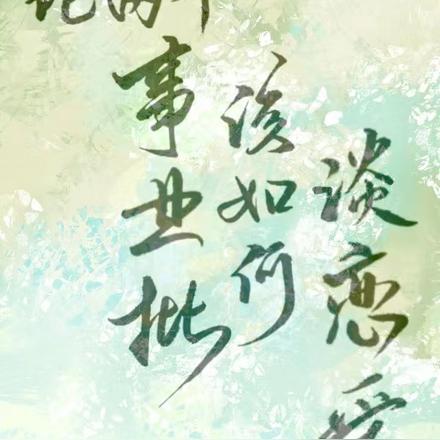 事业批
该如何
谈恋爱